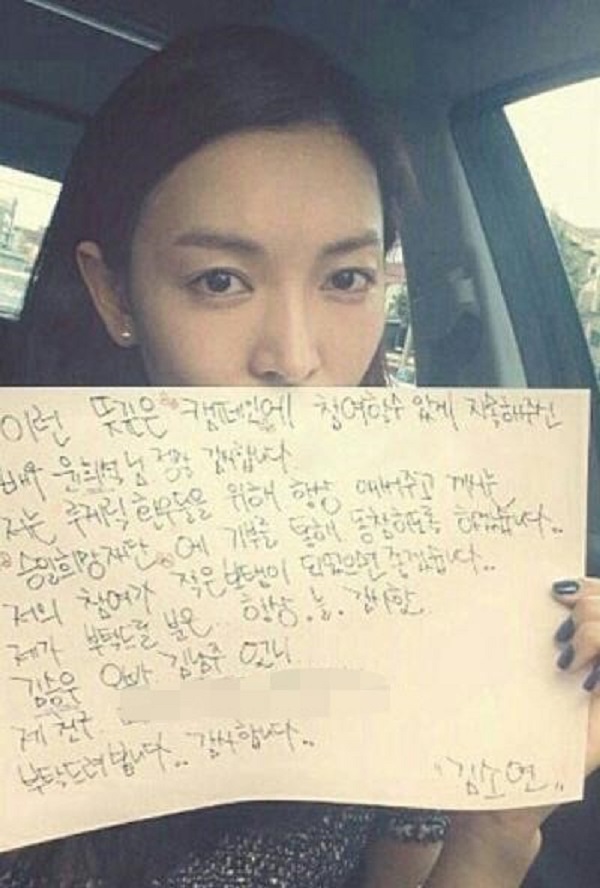 이런 뜻깊은 캠페인에 참여할수 있게 지목해주신
배우 윤희석님 정말 감사합니다
저는 루게릭 환우들을 위해 항상 애써주고 계시는
승일희망재단에 기부를 통해 동참하도록 하겠습니다..
저의 참여가 작은 보탬이 되었으면 좋겠습니다..
제가 부탁드릴 분은 항상.늘.감사한
김승우 오빠 김남주 언니
제 친구
부탁드려봅니다.. 감사합니다..
"김소연"